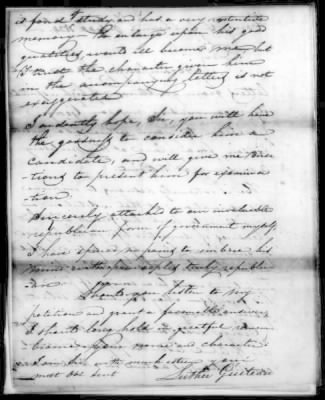 is fond of study and has a very retentive
memory. To enlarge upon his good
qualities would ill become me, but
I trust the character given him
in the accompanying letters is not
exaggerated
I ardently hope, Sir, you will have
the goodness to consider him a
candidate, and will give me Direc-
tions to present him for examina-
tion.
Sincerely attached to our invaluable
republican form of government myself
I have spared no pains to imbue his
mind with principles truly republi-
can.
Should you listen to my
petition and grant a favorable answer,
I should long hold in grateful remem-
brance your name and character
I am Sir with much esteem your
most Obt Servt
Luther Guiteau